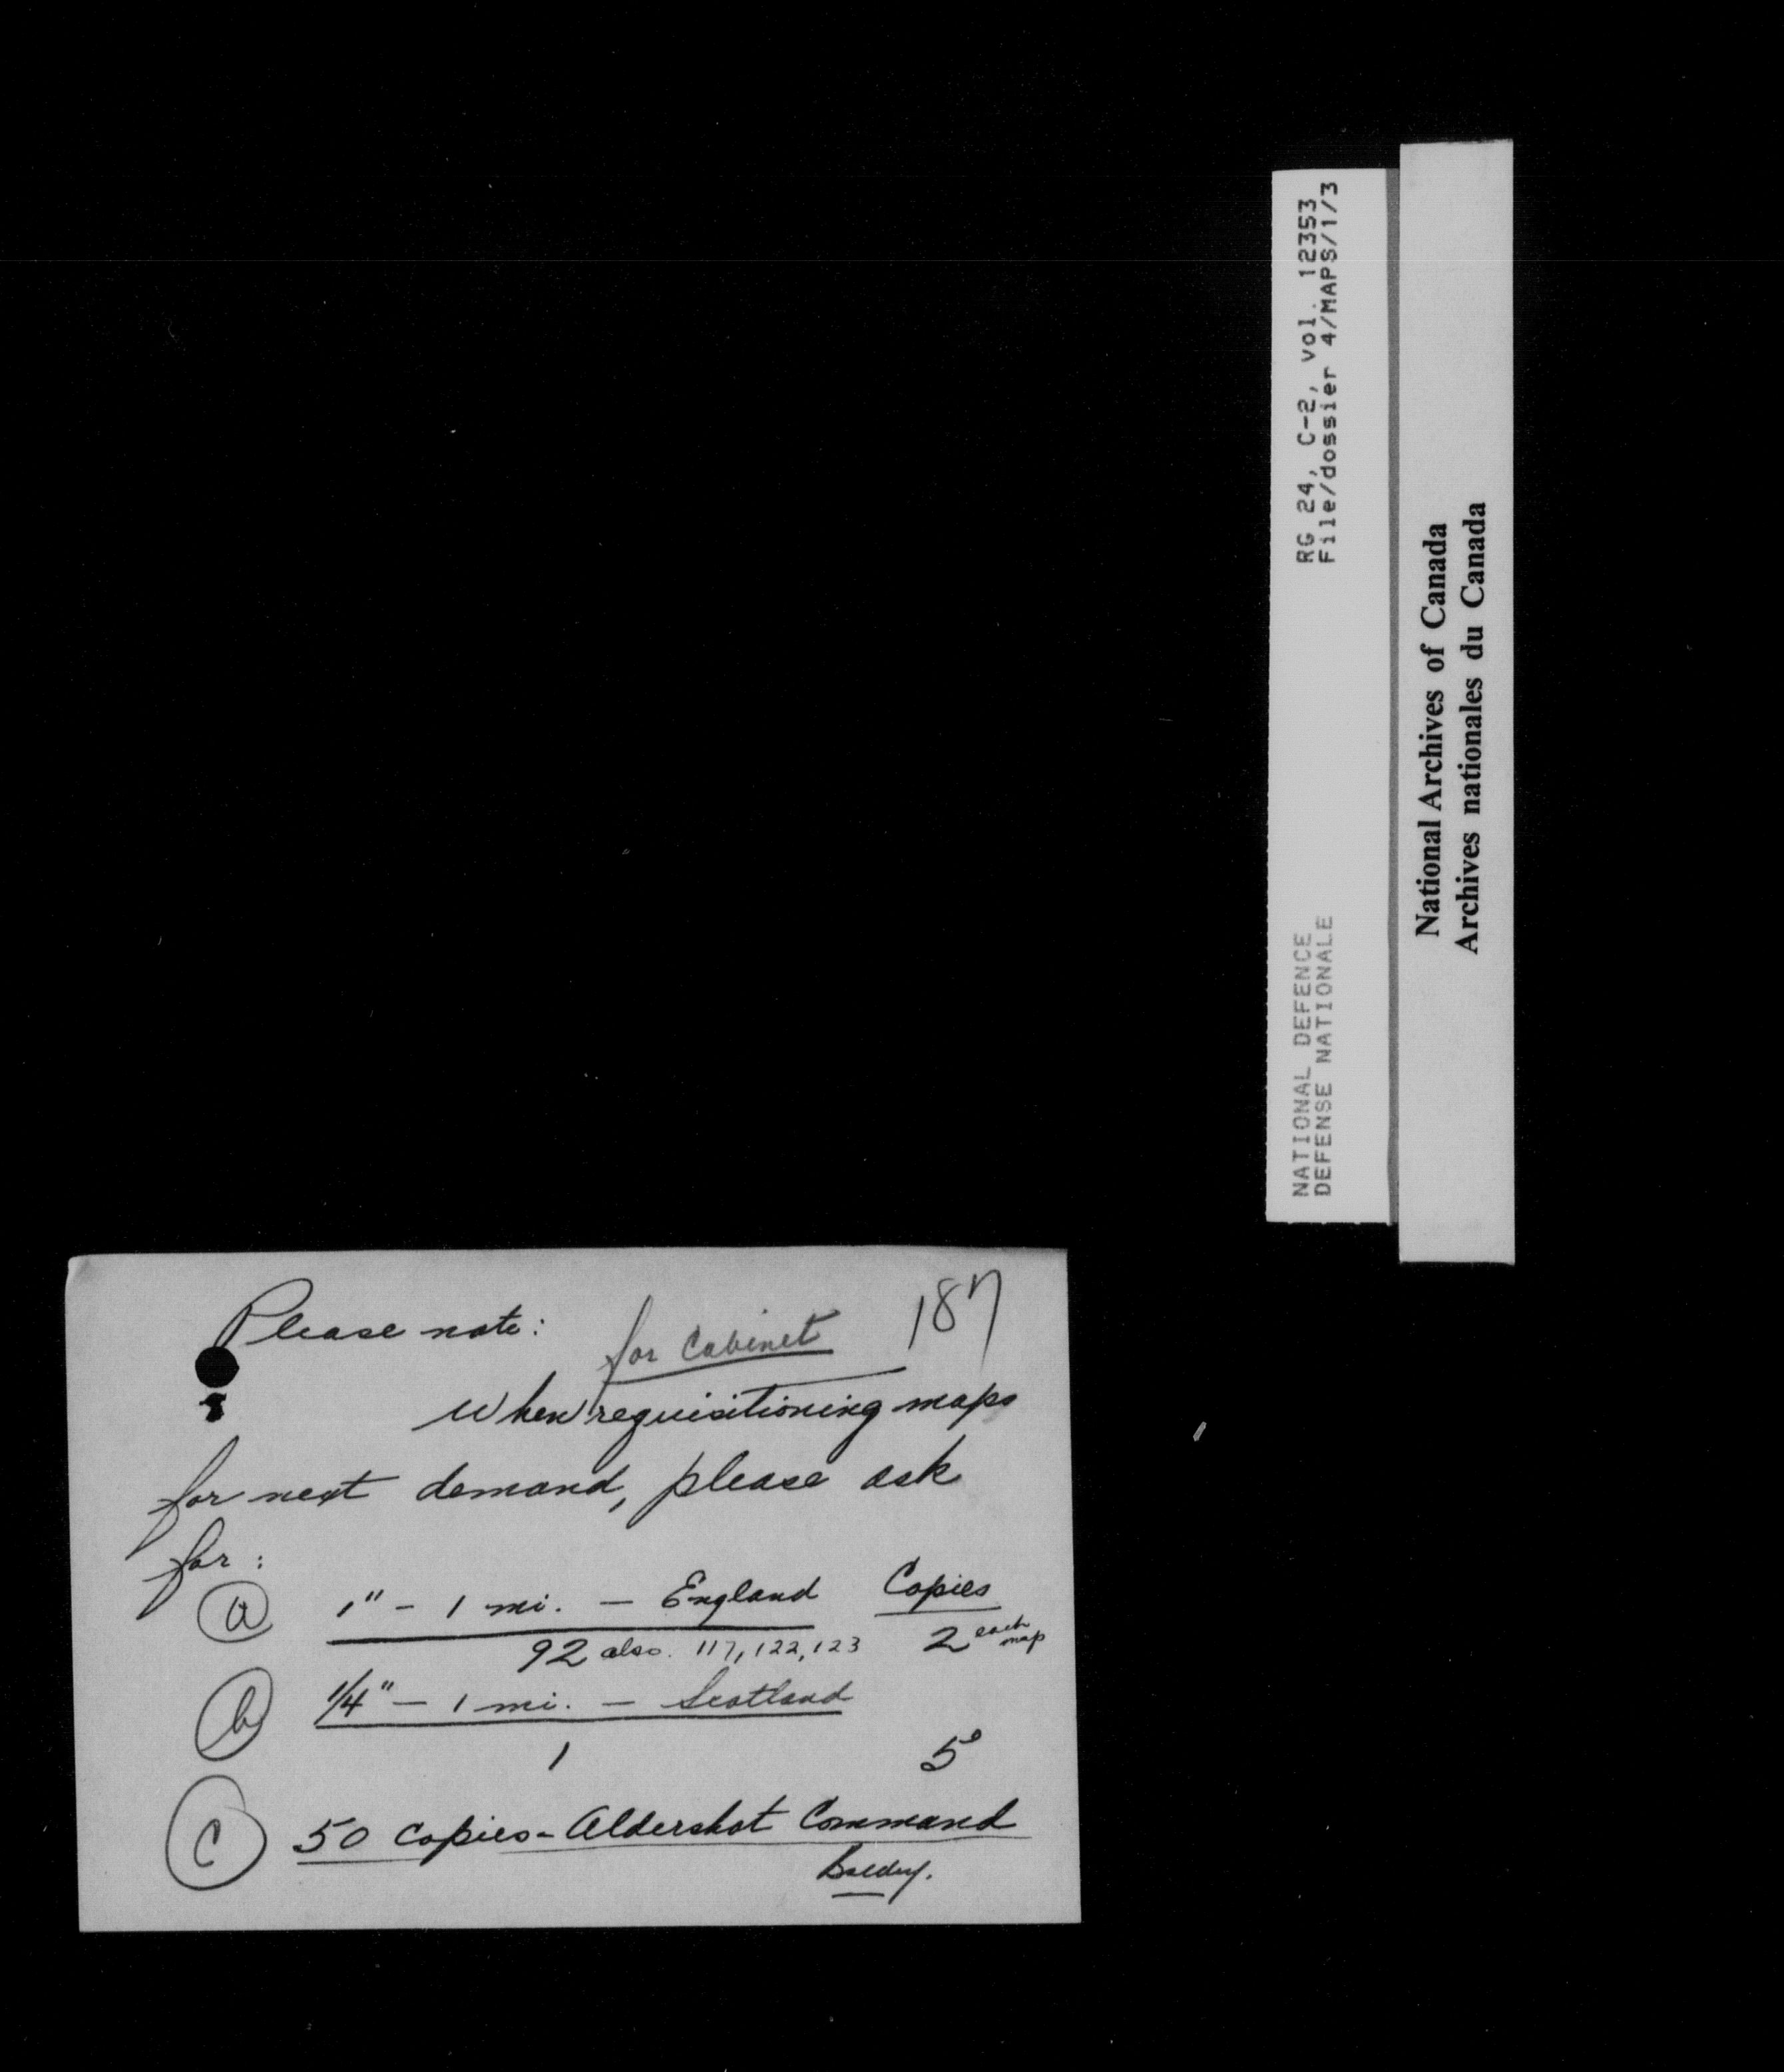 RG 24, C-2, vol. 12353
File/dossier 4/MAPS/1/3
NATIONAL DEFENCE
DEFENSE NATIONALE
National Archives of Canada
Archives nationales du Canada
187
Please note:
for Cabinet
When requisitioning maps
for next demand, please ask
for:
(a) 1" - 1 mi. - England Copies
92 also. 117, 122, 123 2 each map
(b) 1/4" - 1 mi. - Scotland
1 5
(c) 50 copies - Aldershot Command